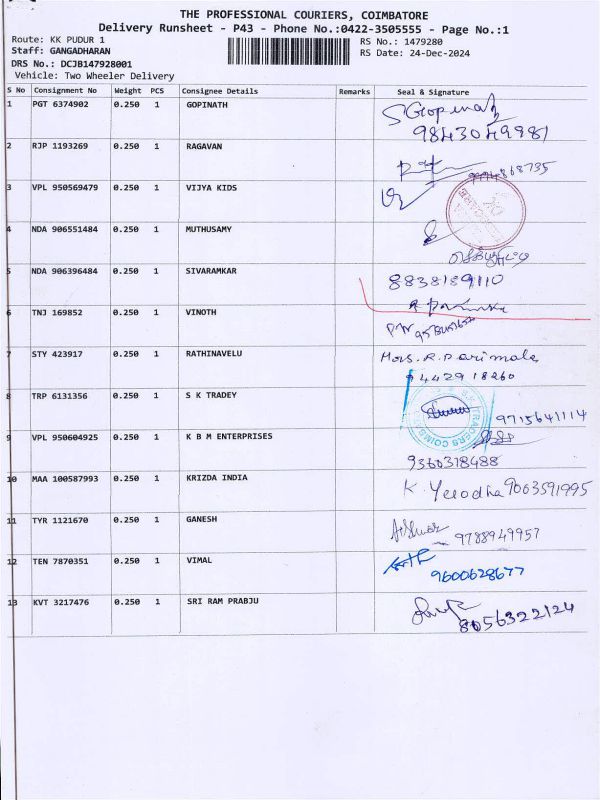 THE PROFESSIONAL COURIERS, COIMBATORE
Delivery Runsheet - P43 - Phone No.:0422-3505555 - Page No.:1
Route: KK PUDUR 1
Staff: GANGADHARAN
DRS No.: DCJB147928001
Vehicle: Two Wheeler Delivery
RS No.: 1479280
RS Date: 24-Dec-2024
S No Consignment No Weight PCS Consignee Details Remarks Seal & Signature
1 PGT 6374902 0.250 1 GOPINATH S Gopinath
9843049981
2 RJP 1193269 0.250 1 RAGAVAN
3 VPL 950569479 0.250 1 VIJYA KIDS
4 NDA 906551484 0.250 1 MUTHUSAMY
5 NDA 906396484 0.250 1 SIVARAMKAR 8838189110
6 TNJ 169852 0.250 1 VINOTH
7 STY 423917 0.250 1 RATHINAVELU Mrs. R. Parimala
9442918260
8 TRP 6131356 0.250 1 S K TRADEY 9715641114
9 VPL 950604925 0.250 1 K B M ENTERPRISES
9360318488
10 MAA 100587993 0.250 1 KRIZDA INDIA K. Yesodha 9003591995
11 TYR 1121670 0.250 1 GANESH 9788949957
12 TEN 7870351 0.250 1 VIMAL
9600628677
13 KVT 3217476 0.250 1 SRI RAM PRABJU
8056322124